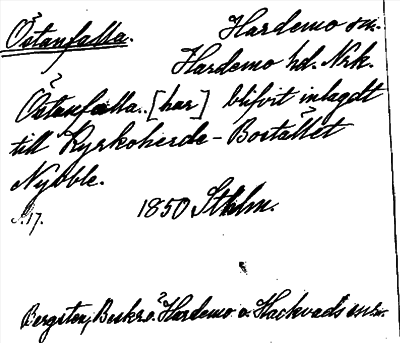 Östanfalla. Hardemo sn.
Hardemo hd. Nrk.
Östanfalla.. [har] blifvit inlagdt
till Kyrkoherde-Bostället
Nybble.
s. 17. 1850 Sthlm.
Bergsten, Beskr. ö. Hardemo o. Hackvads snr.